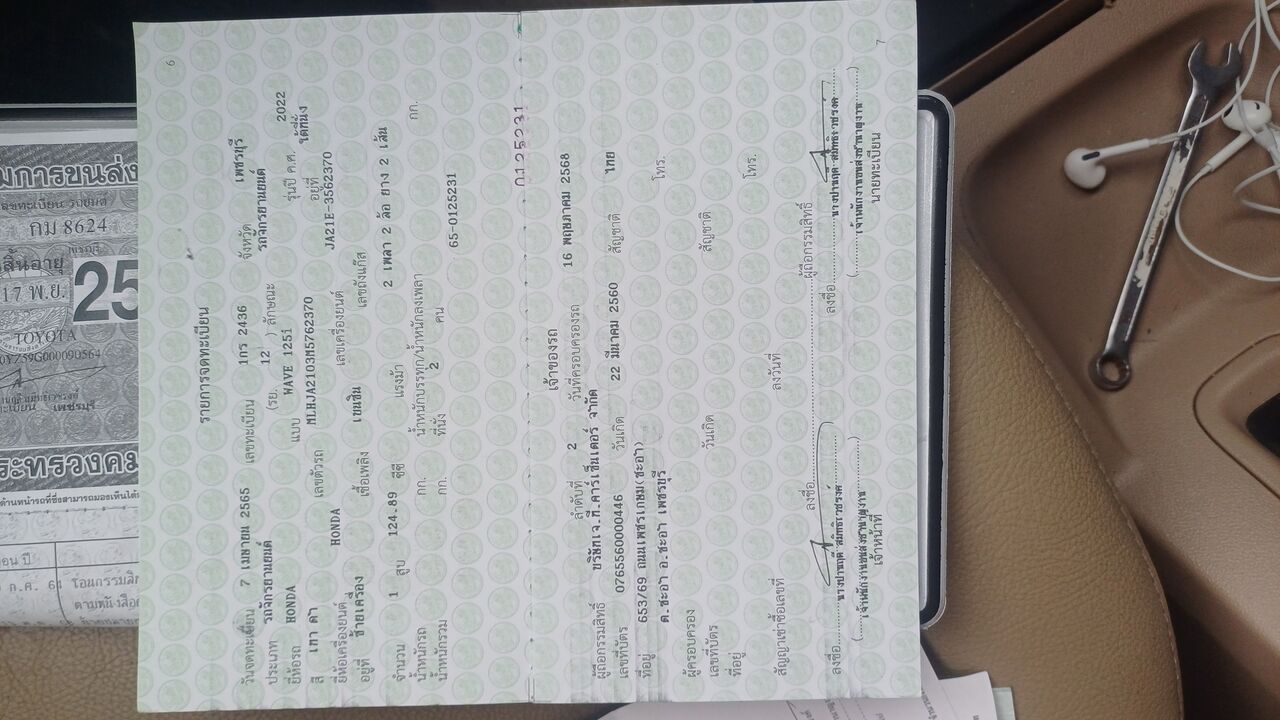 6
รายการจดทะเบียน
วันจดทะเบียน 7 เมษายน 2565 เลขทะเบียน 1กร 2436 จังหวัด เพชรบุรี
ประเภท รถจักรยานยนต์ (รย. 12 ) ลักษณะ รถจักรยานยนต์
ยี่ห้อรถ HONDA แบบ WAVE 125i รุ่นปี ค.ศ. 2022
สี เทา ดำ เลขตัวรถ MLHJA2103M5762370 อยู่ที่ ใต้ที่นั่ง
ยี่ห้อเครื่องยนต์ HONDA เลขเครื่องยนต์ JA21E-3562370
อยู่ที่ ซ้ายเครื่อง เชื้อเพลิง เบนซิน เลขถังแก๊ส
จำนวน 1 สูบ 124.89 ซีซี แรงม้า 2 เพลา 2 ล้อ ยาง 2 เส้น
น้ำหนักรถ กก. น้ำหนักบรรทุก/น้ำหนักลงเพลา กก.
น้ำหนักรวม กก. ที่นั่ง 2 คน 65-0125231
0125231
เจ้าของรถ
ลำดับที่ 2 วันที่ครอบครองรถ 16 พฤษภาคม 2568
ผู้ถือกรรมสิทธิ์ บริษัทเจ.ที.คาร์เซ็นเตอร์ จำกัด
เลขที่บัตร 0765560000446 วันเกิด 22 มีนาคม 2560 สัญชาติ ไทย
ที่อยู่ 653/69 ถนนเพชรเกษม(ชะอำ) โทร.
ต.ชะอำ อ.ชะอำ เพชรบุรี
ผู้ครอบครอง
เลขที่บัตร วันเกิด สัญชาติ
ที่อยู่ โทร.
สัญญาเช่าซื้อเลขที่ ลงวันที่
ลงชื่อ ผู้ถือกรรมสิทธิ์
ลงชื่อ ลงชื่อ
(เจ้าพนักงานขนส่งชำนาญงาน) (เจ้าพนักงานขนส่งชำนาญงาน)
เจ้าหน้าที่ นายทะเบียน
7
มการขนส่ง
กม 8624
เพชรบุรี
สิ้นอายุ
17 พ.ย. 25
TOYOTA
เพชรบุรี
ระทรวงคม
โอนกรรมสิ